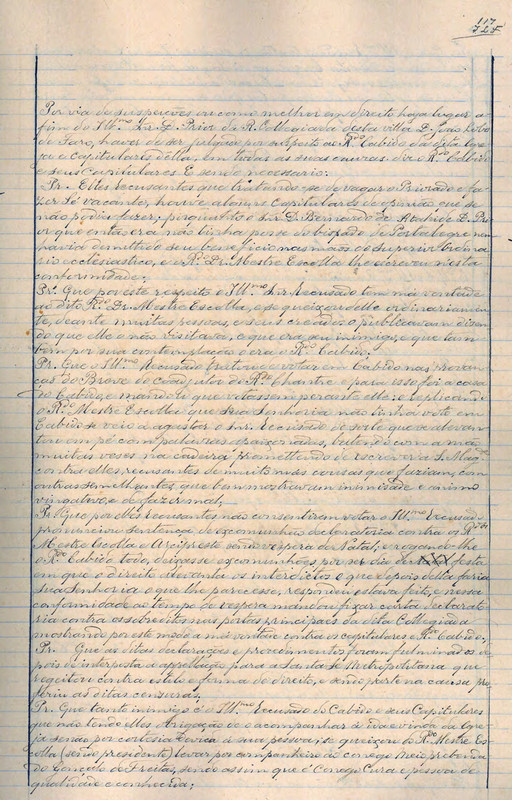 117
Por via de suspeições ou como melhor em direito haja lugar a
fim do Ill.mo Snr. D. Prior da R. Collegiada desta villa D. João Lobo
de Faro, haver de ser julgado por suspeito ao R.do Cabido da dita Igre
ja e Capitulares della, em todas as suas causas d'elle R.do Cabido
e seus Capitulares. E sendo necessario:
Pr. Elles recusantes que tratando-se de vagar o Priorado e fa
zer Sé vacante, houve alguns Capitulares de opinião que se
não podia fazer, porquanto o Snr. D. Bernardo de Ataide D. Pri
or que então era não tinha posse do bispado de Portalegre nem
havia demittido seu beneficio nas mãos do superior ordina
rio ecclesiastico, e o R.do Dr. Mestre Escolla lhe escreveu nesta
conformidade;
Pr. Que por este respeito o Ill.mo Snr. Recusado tem má vontade
ao dito R.do Dr. Mestre Escolla, e se queixou delle ordinariamen
te, deante muitas pessoas, e seus creados o publicavam dizen
do que elle o não visitava, e que era seu inimigo, e que tam
bem por sua contemplação o era o R.do Cabido;
Pr. Que o Ill.mo Recusado pretendeu votar em Cabido nas provan
ças do Breve do coadjutor do R.do Chantre e para isso foi a casa
do Cabido, e mandou que votassem perante elle; e replicando
o R.do Mestre Escolla que Sua Senhoria não tinha voto em
Cabido se veio a agastar o Snr. Recusado de sorte que se alevan
tou em pé com palavras apaixonadas, batendo com a mão
muitas vezes na cadeira promettendo de escrever a S. Mag.de
contra elles, recusantes de muitas más cousas que faziam, com
outras semelhantes que bem mostravam inimisade e animo
vingativo, e de fazer mal;
Pr. Que por elles recusantes não consentirem votar o Ill.mo Recusado
pronunciou sentença de excommunhão declaratoria contra os R.dos
Mestre Escolla e Arcipreste sendo vespera de Natal; e rogando-lhe
o R.do Cabido todo, deixasse excommunhões por ser dia de festa
em que o direito alevanta os interdictos e que depois della faria
Sua Senhoria o que lhe parecesse, respondeu estava feito, e nessa
conformidade ao tempo de vespera mandou fixar carta declarato
ria contra os sobreditos nas portas principaes da dita Collegiada
mostrando por este modo a má vontade contra os capitulares e R.do Cabido.
Pr. Que as ditas declarações e procedimentos foram fulminados de
pois de interposta a appellação para a Santa Sé Metropolitana que
regeitou contra estylo e forma de direito, e sendo parte na causa pro
feriu as ditas censuras.
Pr. Que tanto inimigo é o Ill.mo Recusado do Cabido e seus Capitulares
que não tendo elles obrigação de o acompanhar á ida e vinda da Igre
ja senão por cortesia devida á sua pessoa, se queixou do R.do Mestre Es
colla (sendo presidente) levar por companheiro ao conego meio prebenda
do Gonçalo de Freitas, sendo assim que é Conego Cura e pessoa de
qualidade e conhecida;